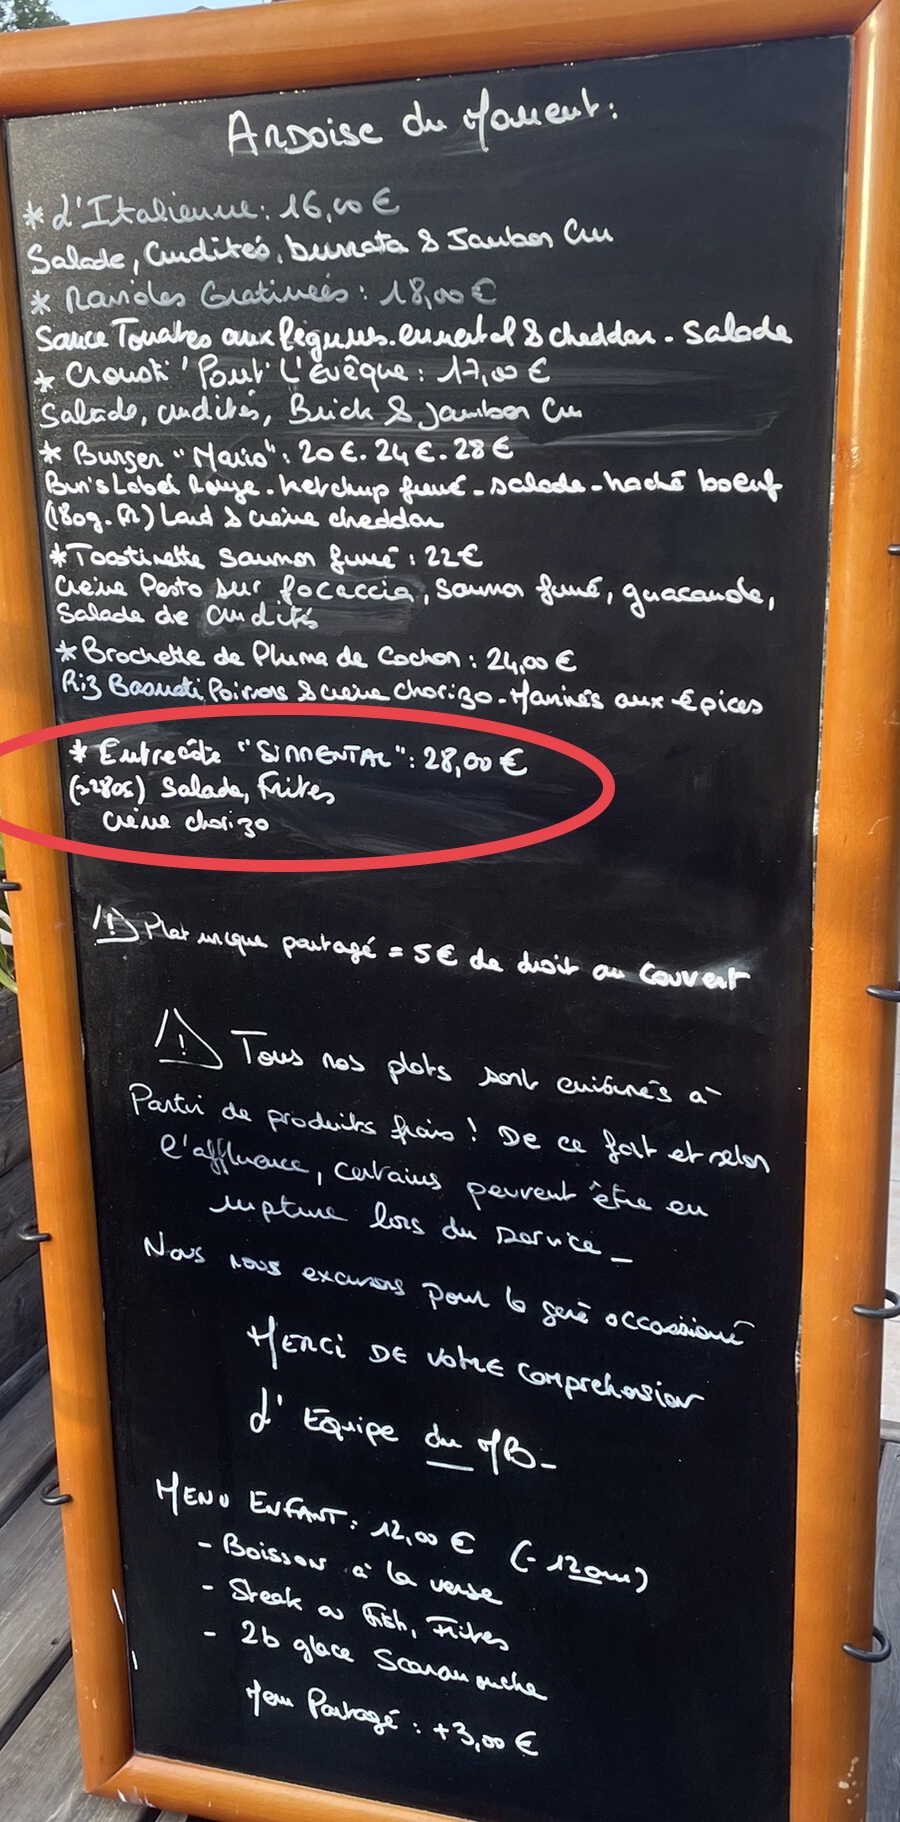 Ardoise du Moment :
* L'Italienne : 16,00 €
Salade, Crudités, burrata & Jambon Cru
* Ravioles Gratinées : 18,00 €
Sauce Tomates aux légumes. emmental & cheddar - Salade
* Crousti' Pont L'évêque : 17,00 €
Salade, crudités, Brick & Jambon Cru
* Burger "Mario" : 20 €. 24 €. 28 €
Bun's Label Rouge. ketchup fumé - salade - haché boeuf
(180g. ) Lard & crème cheddar
* Toastinette saumon fumé : 22 €
Crème Pesto sur focaccia, saumon fumé, guacamole,
Salade de crudités
* Brochette de Pluma de Cochon : 24,00 €
Riz Basmati Poivrons & crème chorizo - Marinés aux épices
* Entrecôte "SIMMENTAL" : 28,00 €
(≈280g) Salade, Frites
crème chorizo
/!\ Plat unique partagé = 5 € de droit au couvert
/!\ Tous nos plats sont cuisinés à
Partir de produits frais ! De ce fait et selon
l'affluence, certains peuvent être en
rupture lors du service_
Nous nous excusons pour la gêne occasionné
MERCI DE VOTRE comprehension
L'Equipe du MB_
MENU ENFANT : 12,00 € (- 12 ans)
- Boisson à la verse
- Steak ou Fish, Frites
- 2b glace Scaramouche
Menu Partagé : +3,00 €